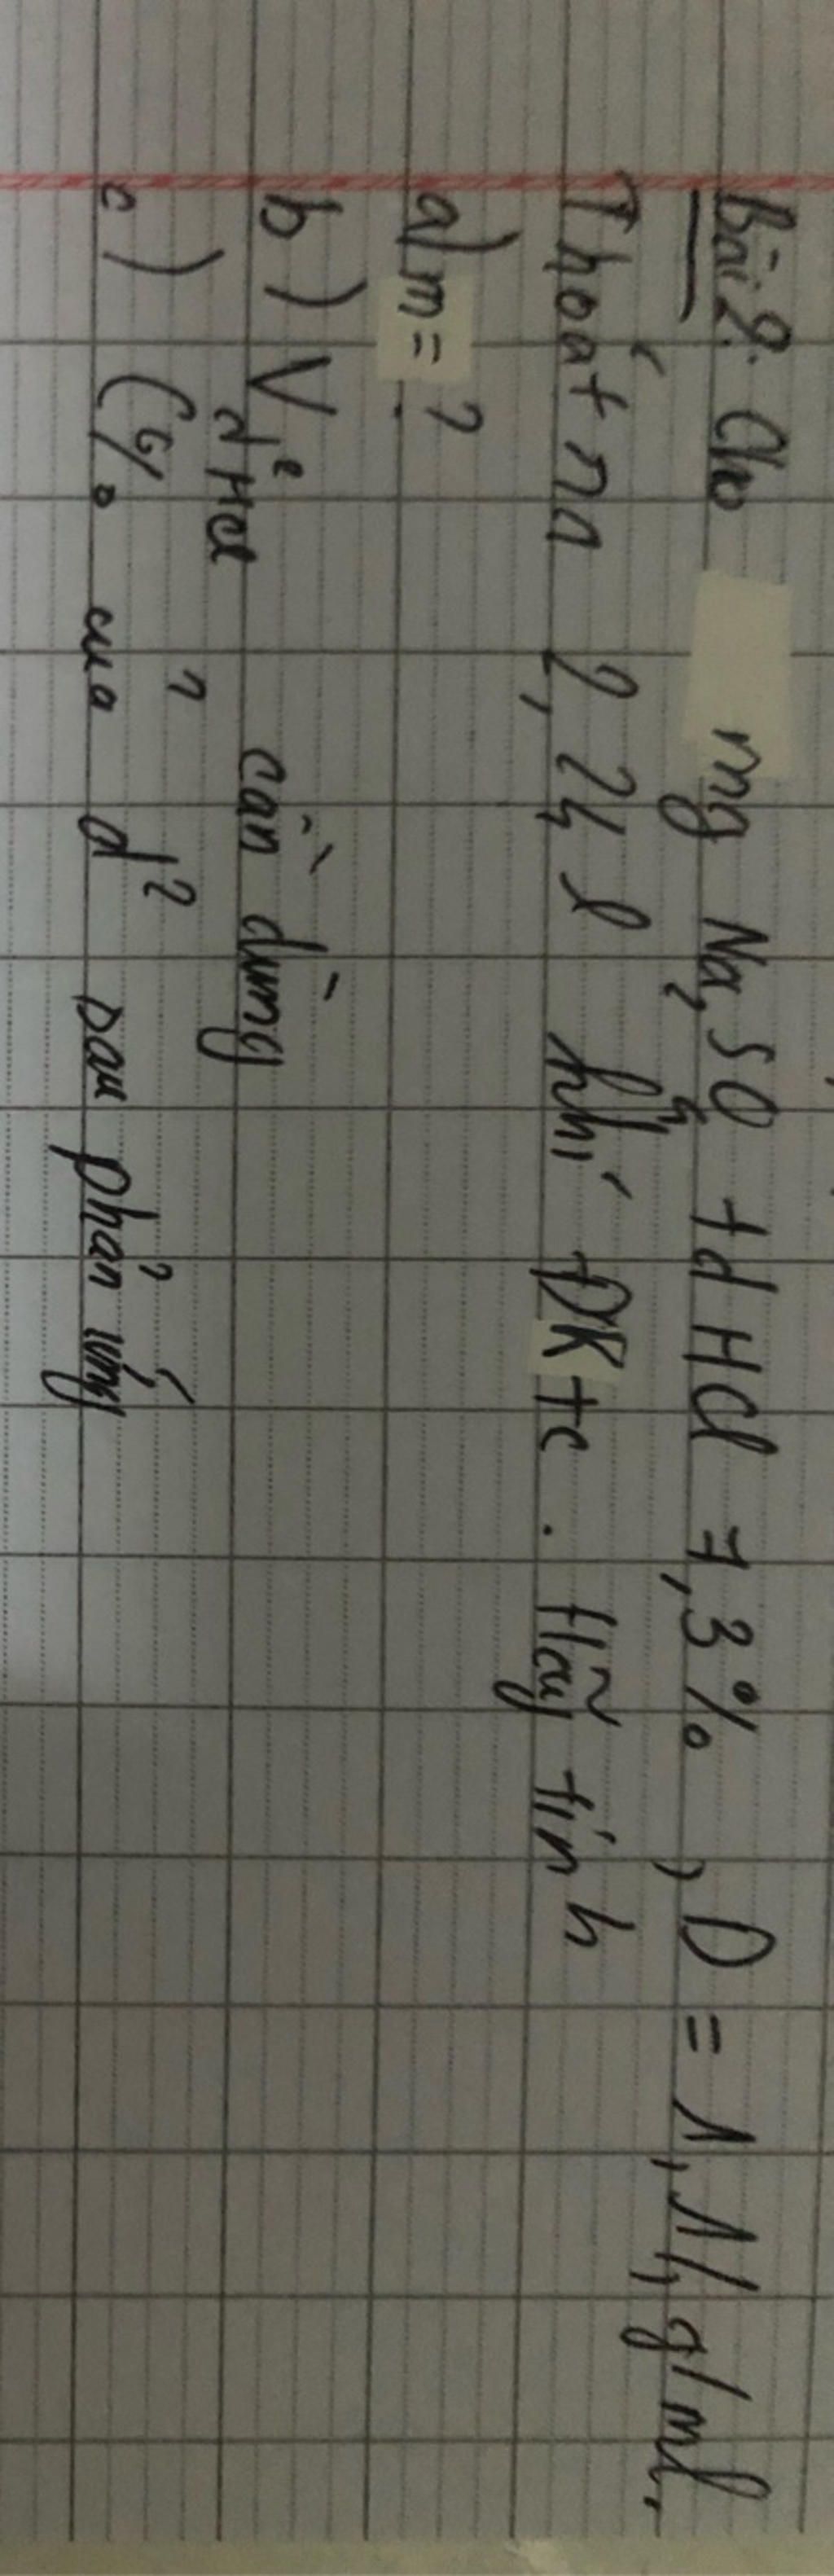 Bài 2: Cho mg Na2SO4 td HCl 7,3% , D = 1,14 g/ml.
Thoát ra 2,24 l khí ĐKtc. Hãy tính
a) m = ?
b) V d² HCl cần dùng
c) C% của d² sau phản ứng